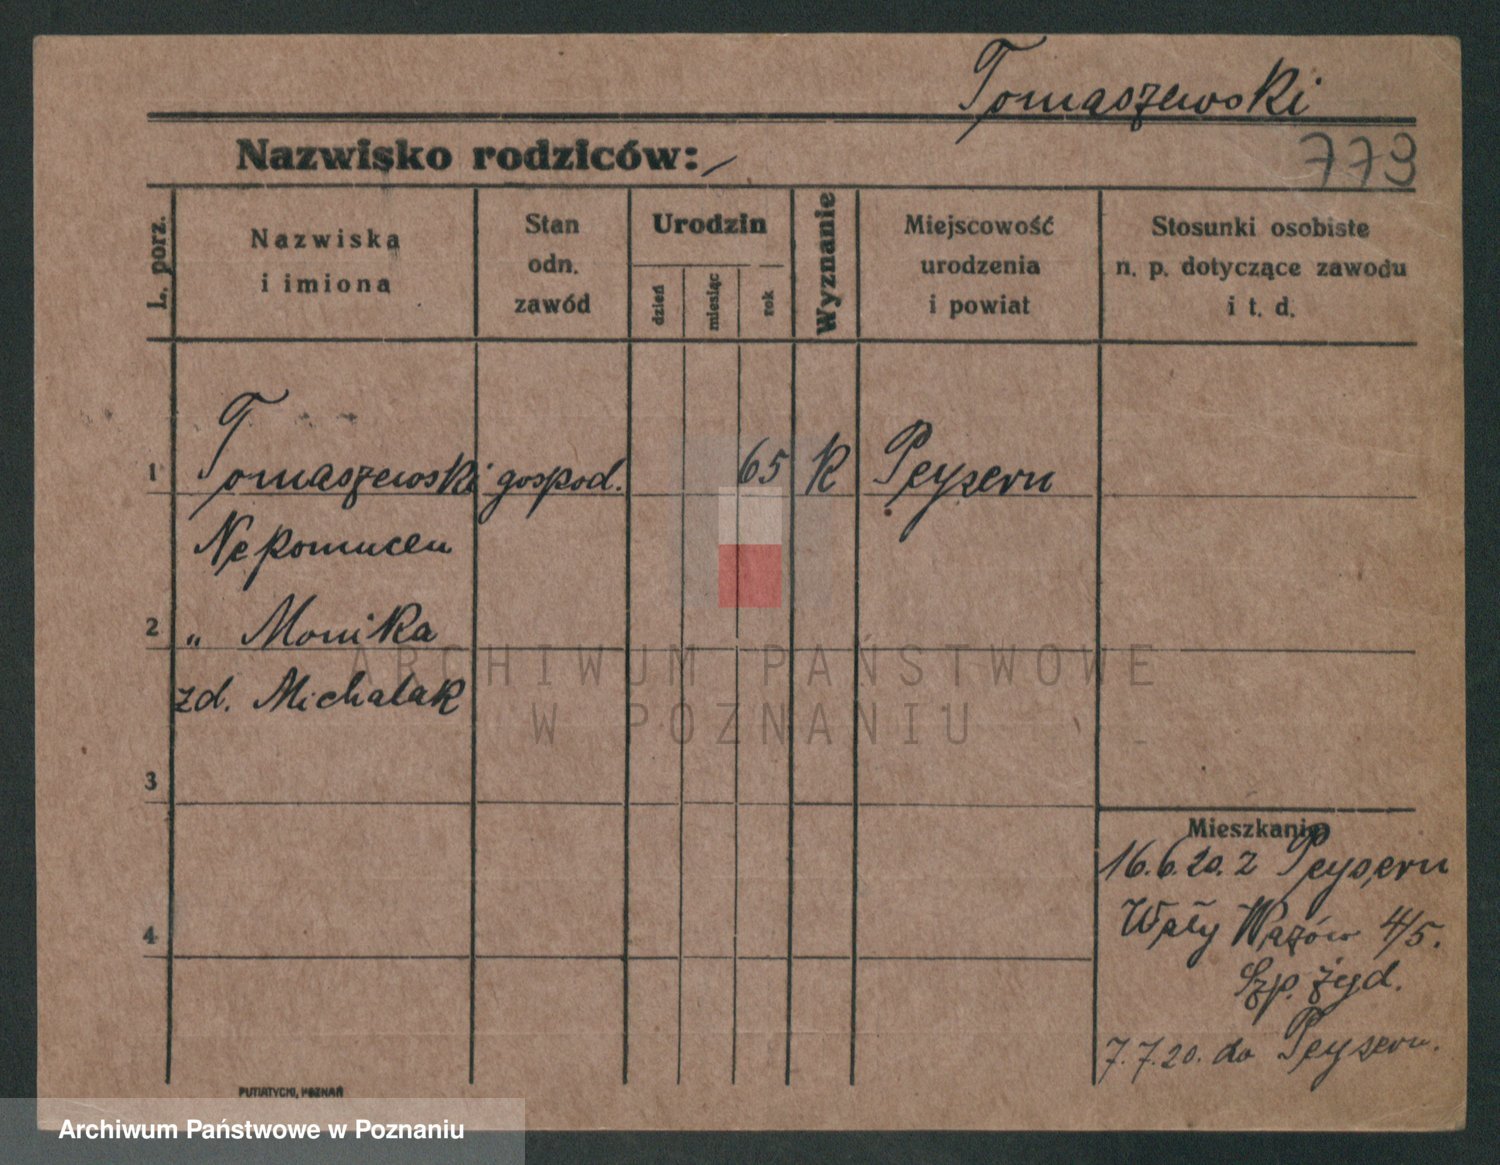 Tomaszewski
Nazwisko rodziców: /
779
L. porz.
Nazwiska
i imiona
Stan
odn.
zawód
Urodzin
dzień
miesiąc
rok
Wyznanie
Miejscowość
urodzenia
i powiat
Stosunki osobiste
n. p. dotyczące zawodu
i t. d.
1 Tomaszewski gospod. 65 K Peysern
Nepomucen
2 „ Monika
zd. Michalak
3
4
Mieszkanie
16.6.20. z Peysern
Wały Wazów 4/5.
Szp. żyd.
7.7.20. do Peysern.
PUTIATYCKI, POZNAŃ
ARCHIWUM PAŃSTWOWE
W POZNANIU
Archiwum Państwowe w Poznaniu